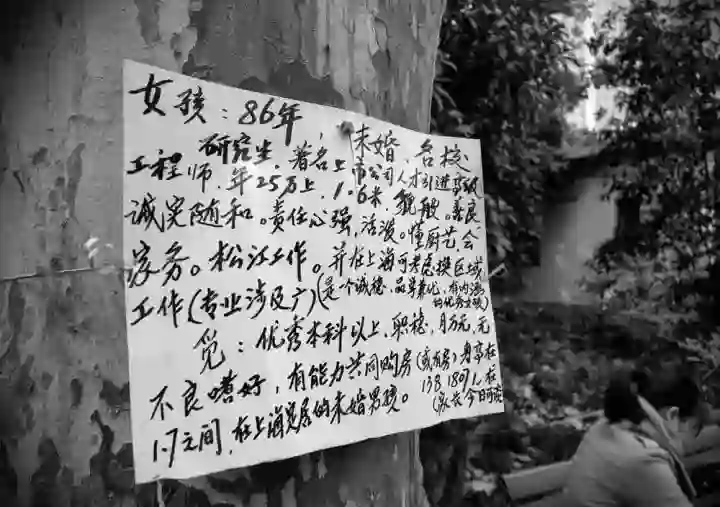 女孩：86年，未婚，名校
研究生，著名上市公司人才引进高级
工程师，年25万上，1.6米，貌般。善良
诚实随和。责任心强，活泼。懂厨艺，会
家务。松江工作。并在上海可考虑换区域
工作(专业涉及广)(是一个诚稳、品学兼优、有内涵
的优秀女孩)
觅：优秀本科以上，职稳，月万元，无
不良嗜好，有能力共同购房(或有房)身高在
1.7之间，在上海定居的未婚男孩。
(家长今日可谈)